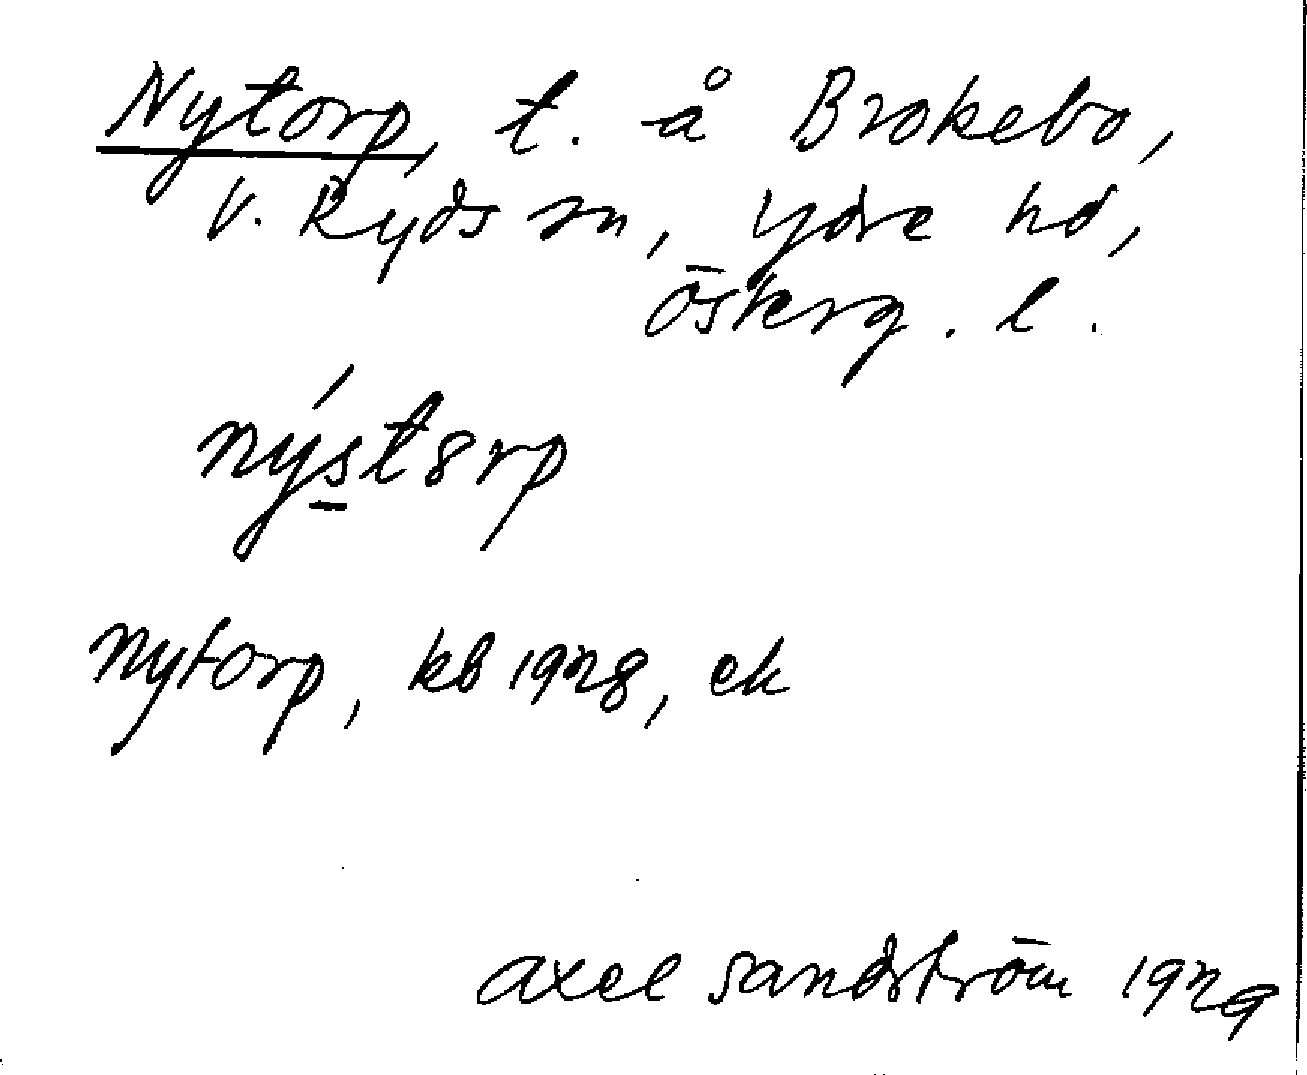 Nytorp, t. å Brokebo,
V. Ryds sn, Ydre hd,
Österg. l.
nýst8rp
Nytorp, kb 1928, ek
Axel Sandström 1929